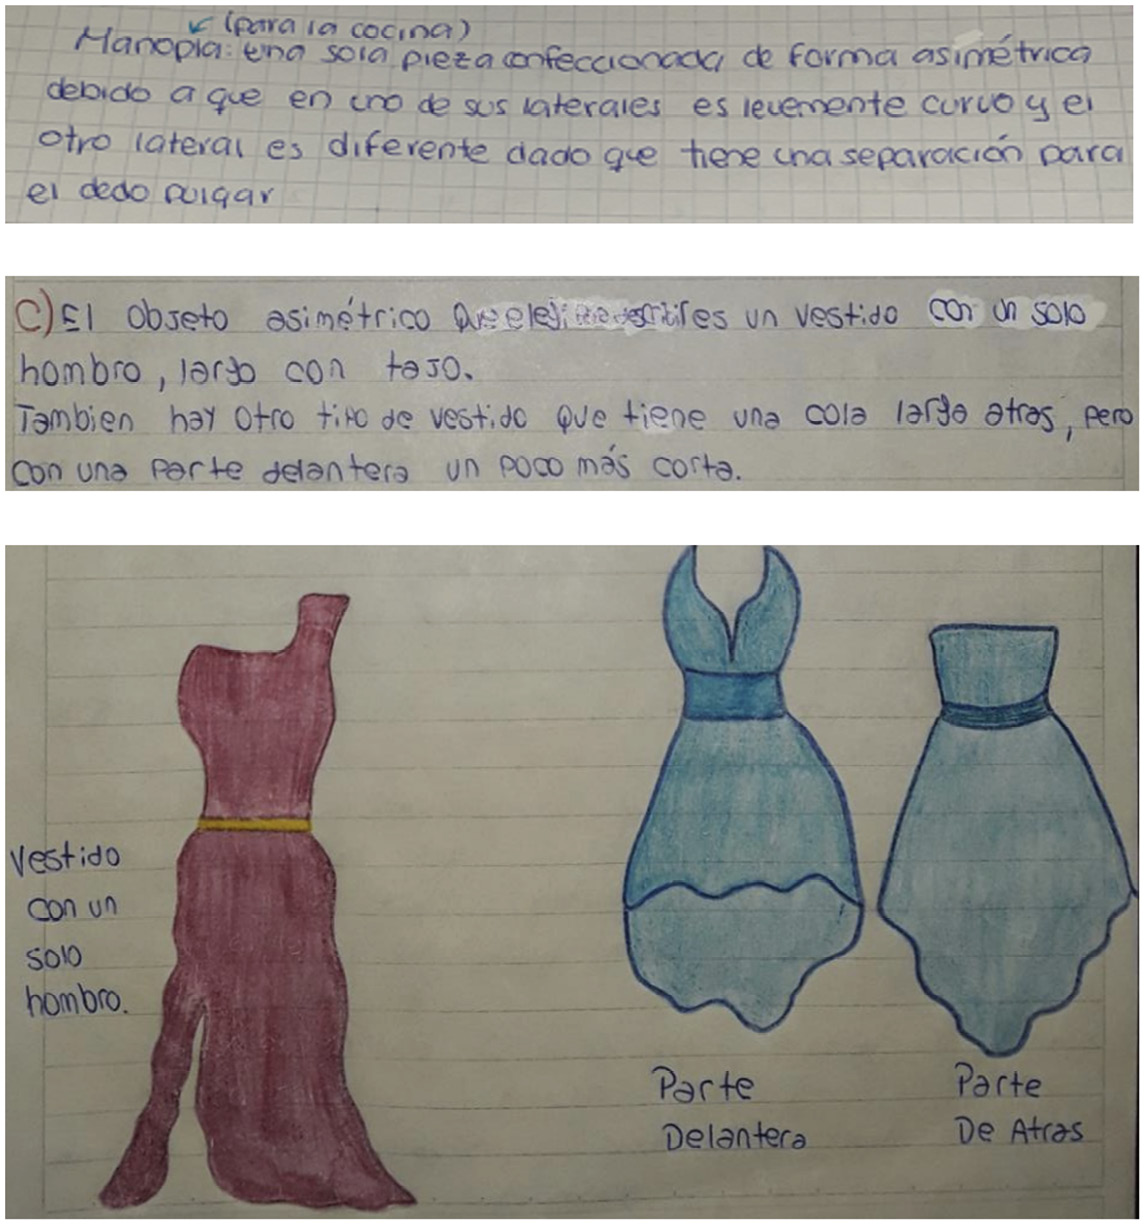 (para la cocina)
Manopla: una sola pieza confeccionada de forma asimétrica
debido a que en uno de sus laterales es levemente curvo y el
otro lateral es diferente dado que tiene una separación para
el dedo pulgar
C) El objeto asimétrico que elejí es un vestido con un solo
hombro, largo con tajo.
Tambien hay otro tipo de vestido que tiene una cola larga atras, pero
con una parte delantera un poco más corta.
Vestido
con un
solo
hombro.
Parte
Delantera
Parte
De Atras